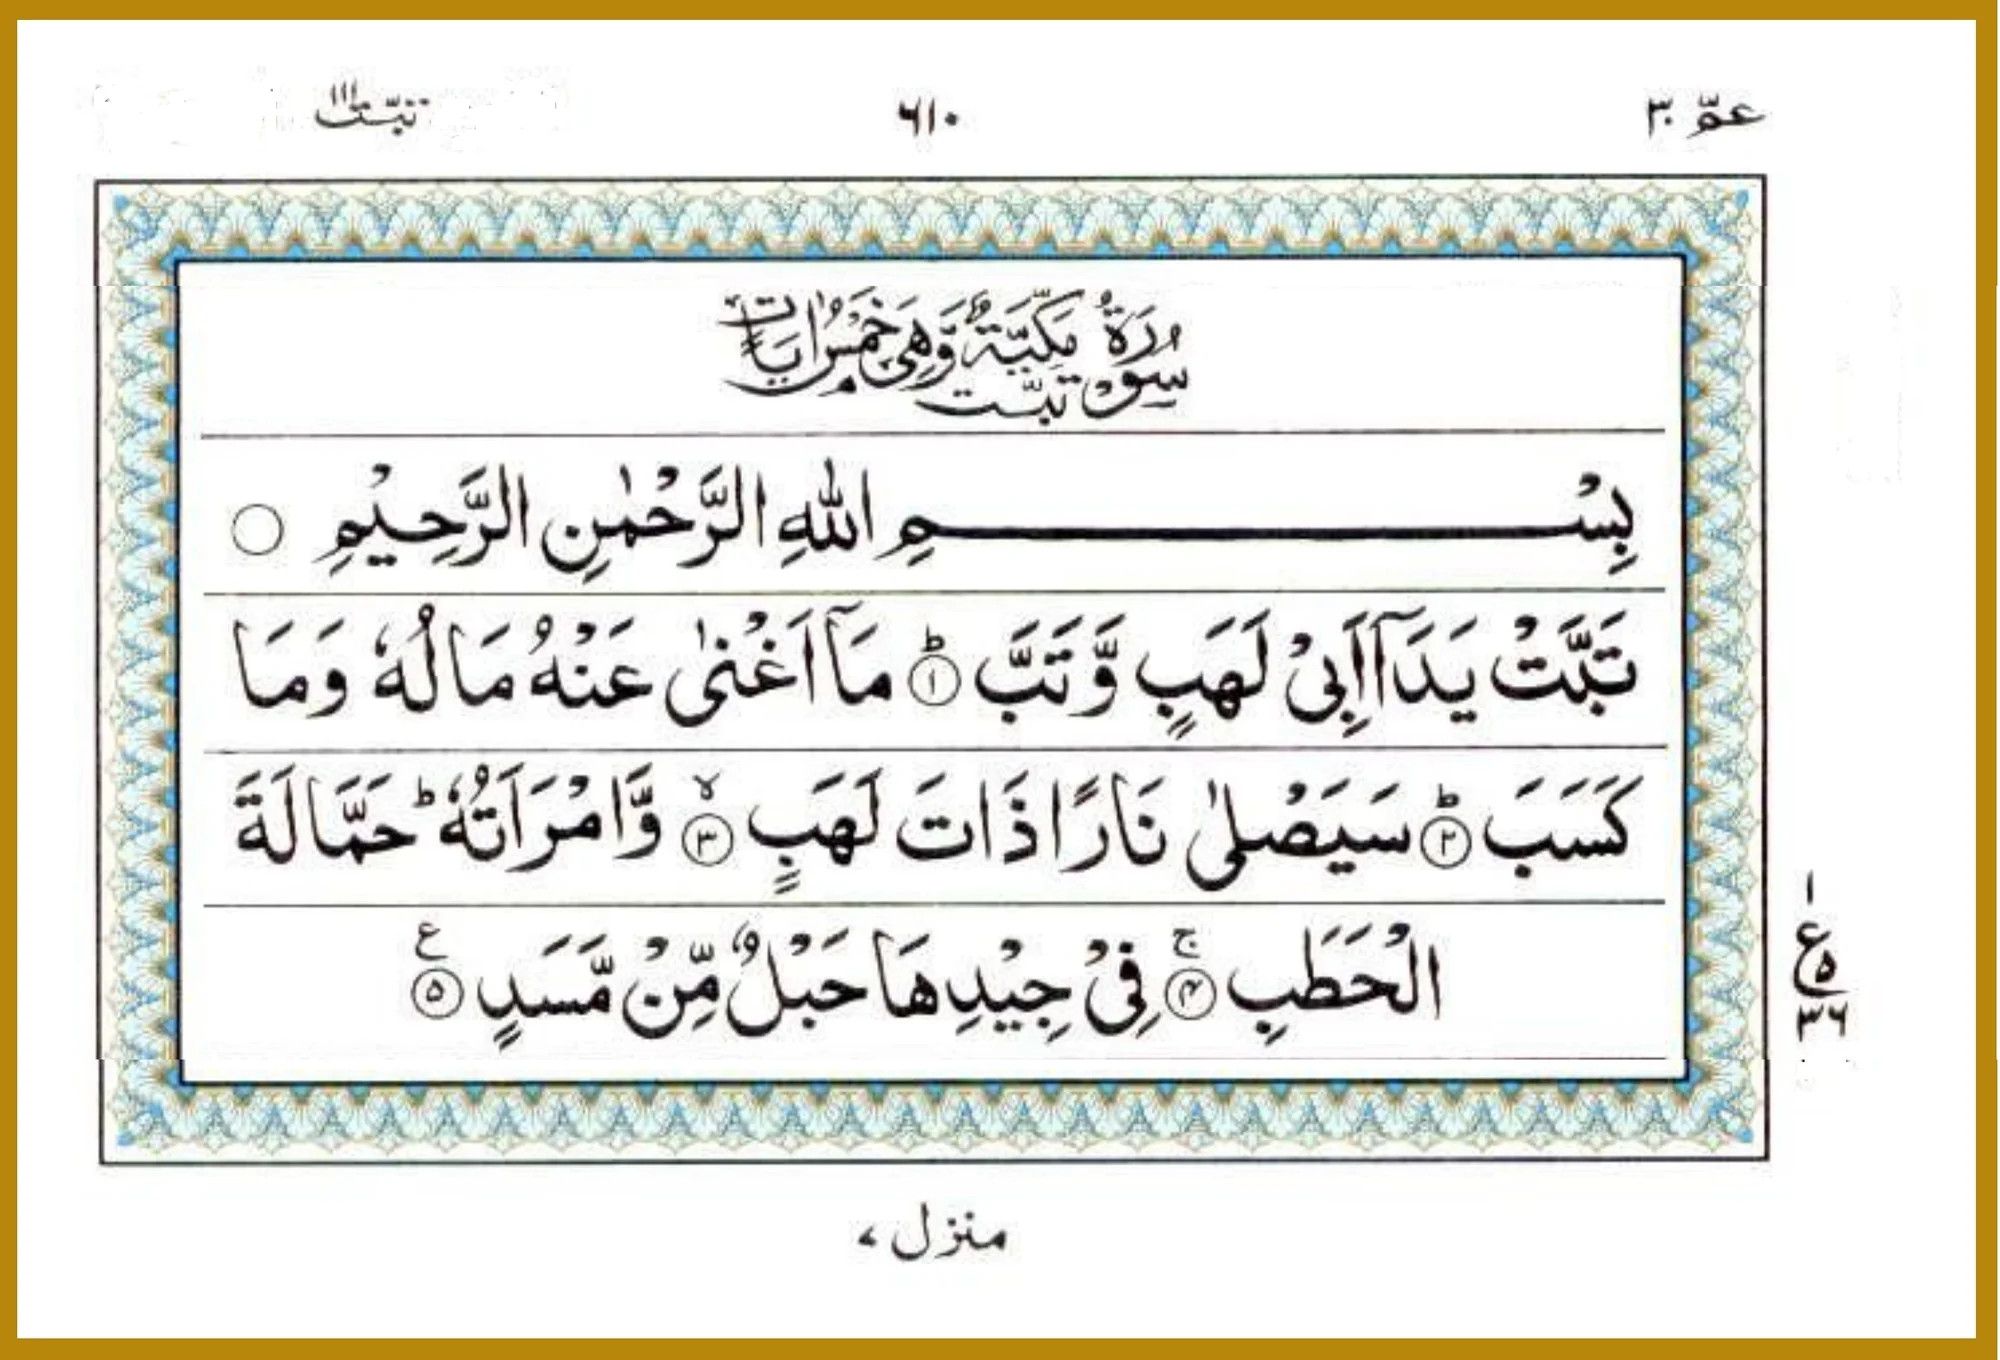 عمّ ٣٠
٦١٠
تبّت ١١١
سُوْرَةُ تَبَّتْ مَكِّيَّةٌ وَّهِىَ خَمْسُ اٰيَاتٍ
بِسْمِ اللّٰهِ الرَّحْمٰنِ الرَّحِيْمِ ○
تَبَّتْ يَدَآ اَبِىْ لَهَبٍ وَّتَبَّ ؕ ١ مَآ اَغْنٰى عَنْهُ مَالُهٗ وَمَا
كَسَبَ ؕ ٢ سَيَصْلٰى نَارًا ذَاتَ لَهَبٍ ۙ ٣ وَّامْرَاَتُهٗ ؕ حَمَّالَةَ
الْحَطَبِ ۚ ٤ فِىْ جِيْدِهَا حَبْلٌ مِّنْ مَّسَدٍ ع ٥
١
ع ٥
٣٦
منزل ٧